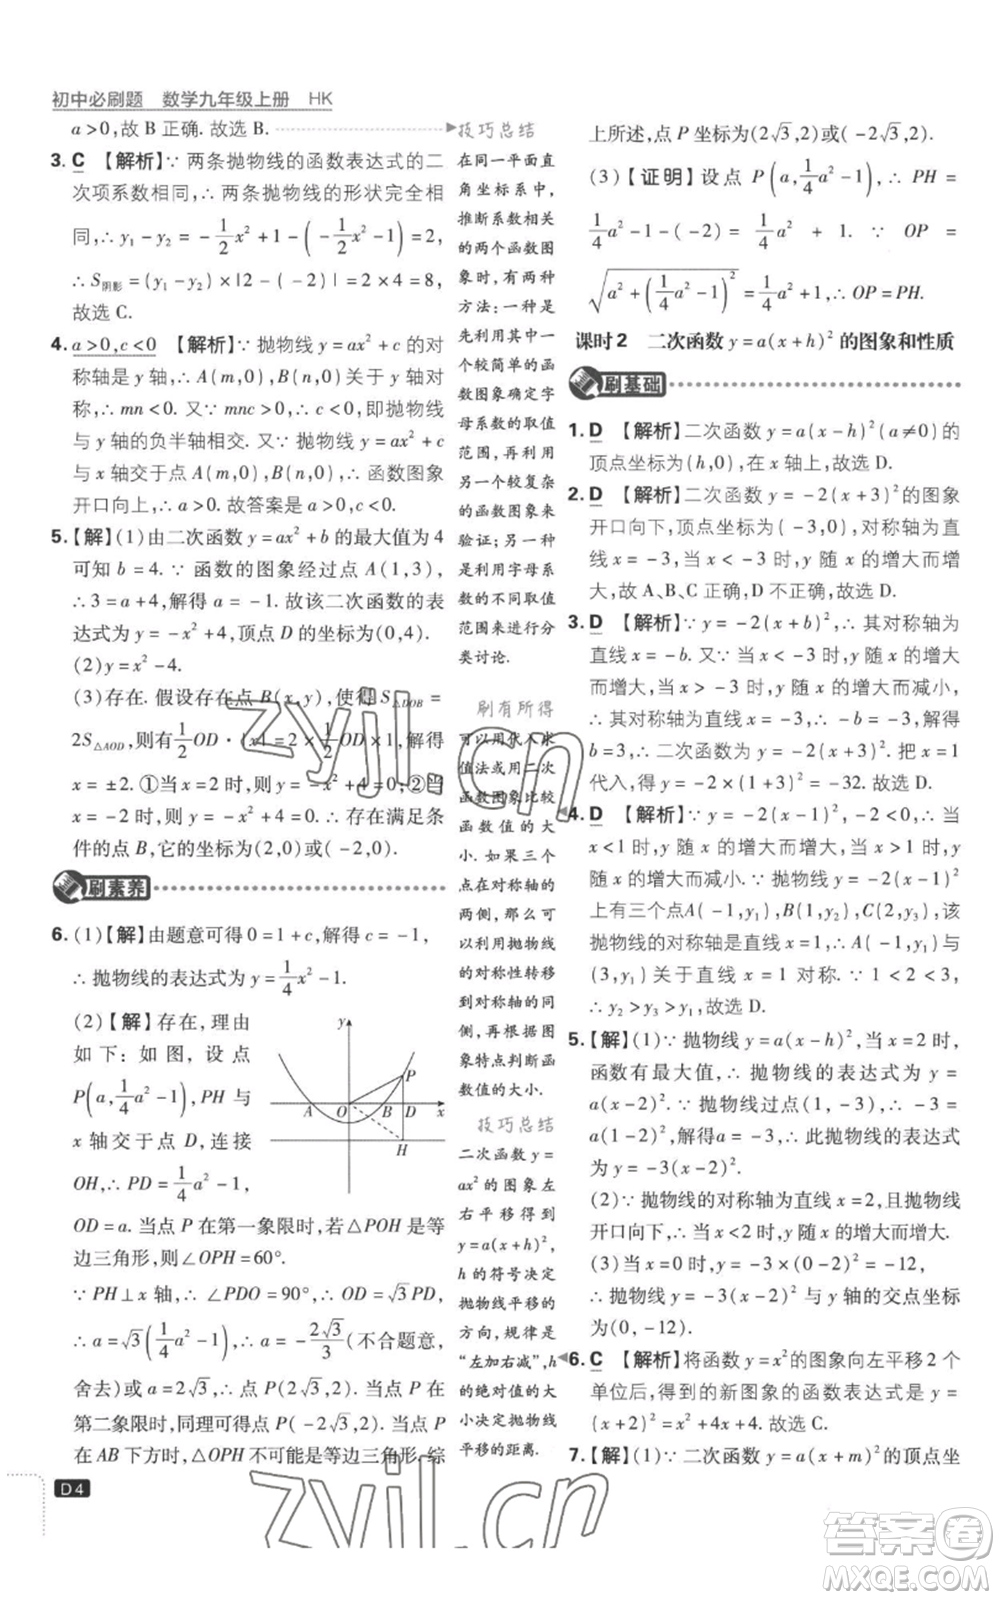 初中必刷题 数学九年级上册 HK
a>0,故 B 正确. 故选 B.
3. C 【解析】∵ 两条抛物线的函数表达式的二
次项系数相同,∴ 两条抛物线的形状完全相
同,∴ y₁-y₂ = -1/2x²+1-(-1/2x²-1)=2,
∴ S阴影=(y₁-y₂)×|2-(-2)|=2×4=8,
故选 C.
4. a>0,c<0 【解析】∵ 抛物线 y=ax²+c 的对
称轴是 y 轴,∴ A(m,0),B(n,0)关于 y 轴对
称,∴ mn<0. 又∵ mnc>0,∴ c<0,即抛物线
与 y 轴的负半轴相交. 又∵ 抛物线 y=ax²+c
与 x 轴交于点 A(m,0),B(n,0),∴ 函数图象
开口向上,∴ a>0. 故答案是 a>0,c<0.
5. 【解】(1)由二次函数 y=ax²+b 的最大值为 4
可知 b=4. ∵ 函数的图象经过点 A(1,3),
∴ 3=a+4,解得 a=-1. 故该二次函数的表
达式为 y=-x²+4,顶点 D 的坐标为(0,4).
(2)y=x²-4.
(3)存在. 假设存在点 B(x,y),使得 S△DOB =
2S△AOD,则有1/2OD·|x|=2×1/2OD×1,解得
x=±2. ①当 x=2 时,y=-x²+4=0;②当
x=-2 时,y=-x²+4=0. ∴ 存在满足条
件的点 B,它的坐标为(2,0)或(-2,0).
刷素养
6. (1)【解】由题意可得 0=1+c,解得 c=-1,
∴ 抛物线的表达式为 y=1/4x²-1.
(2)【解】存在,理由
如下:如图,设点
P(a,1/4a²-1),PH 与
x 轴交于点 D,连接
OH,∴ PD=1/4a²-1,
OD=a. 当点 P 在第一象限时,若△POH 是等
边三角形,则∠OPH=60°.
∵ PH⊥x 轴,∴ ∠PDO=90°,∴ OD=√3PD,
∴ a=√3(1/4a²-1),∴ a=-2√3/3(不合题意,
舍去)或 a=2√3,∴ P(2√3,2). 当点 P 在
第二象限时,同理可得点 P(-2√3,2). 当点 P
在 AB 下方时,△OPH 不可能是等边三角形. 综
y
P
A
O
B
D
x
H
D4
技巧总结
在同一平面直
角坐标系中,
推断系数相关
的两个函数图
象时,有两种
方法:一种是
先利用其中一
个较简单的函
数图象确定字
母系数的取值
范围,再利用
另一个较复杂
的函数图象来
验证;另一种
是利用字母系
数的不同取值
范围来进行分
类讨论.
刷有所得
可以用代入求
值法或用二次
函数图象比较
函数值的大
小. 如果三个
点在对称轴的
两侧,那么可
以利用抛物线
的对称性转移
到对称轴的同
侧,再根据图
象特点判断函
数值的大小.
技巧总结
二次函数 y=
ax² 的图象左
右平移得到
y=a(x+h)²,
h 的符号决定
抛物线平移的
方向,规律是
“左加右减”,h
的绝对值的大
小决定抛物线
平移的距离.
上所述,点 P 坐标为(2√3,2)或(-2√3,2).
(3)【证明】设点 P(a,1/4a²-1),∴ PH =
1/4a²-1-(-2) = 1/4a² + 1. ∵ OP =
√(a²+(1/4a²-1)²)=1/4a²+1,∴ OP=PH.
课时2 二次函数 y=a(x+h)² 的图象和性质
刷基础
1. D 【解析】二次函数 y=a(x-h)²(a≠0)的
顶点坐标为(h,0),在 x 轴上,故选 D.
2. D 【解析】二次函数 y=-2(x+3)²的图象
开口向下,顶点坐标为(-3,0),对称轴为直
线 x=-3,当 x<-3 时,y 随 x 的增大而增
大,故 A、B、C 正确,D 不正确,故选 D.
3. D 【解析】∵ y=-2(x+b)²,∴ 其对称轴为
直线 x=-b. 又∵ 当 x<-3 时,y 随 x 的增大
而增大,当 x>-3 时,y 随 x 的增大而减小,
∴ 其对称轴为直线 x=-3,∴ -b=-3,解得
b=3,∴ 二次函数为 y=-2(x+3)². 把 x=1
代入,得 y=-2×(1+3)²=-32. 故选 D.
4. D 【解析】∵ y=-2(x-1)²,-2<0,∴ 当
x<1 时,y 随 x 的增大而增大,当 x>1 时,y
随 x 的增大而减小. ∵ 抛物线 y=-2(x-1)²
上有三个点A(-1,y₁),B(1,y₂),C(2,y₃),该
抛物线的对称轴是直线 x=1,∴ A(-1,y₁)与
(3,y₁)关于直线 x=1 对称. ∵ 1<2<3,
∴ y₂>y₃>y₁,故选 D.
5. 【解】(1)∵ 抛物线 y=a(x-h)²,当 x=2时,
函数有最大值,∴ 抛物线的表达式为 y=
a(x-2)². ∵ 抛物线过点(1,-3),∴ -3=
a(1-2)²,解得 a=-3,∴ 此抛物线的表达式
为 y=-3(x-2)².
(2)∵ 抛物线的对称轴为直线 x=2,且抛物线
开口向下,∴ 当 x<2 时,y 随 x 的增大而增大.
(3)当 x=0 时,y=-3×(0-2)²=-12,
∴ 抛物线 y=-3(x-2)²与 y轴的交点坐标
为(0,-12).
6. C 【解析】将函数 y=x²的图象向左平移2 个
单位后,得到的新图象的函数表达式是 y=
(x+2)²=x²+4x+4. 故选 C.
7. 【解】(1)∵ 二次函数 y=a(x+m)²的顶点坐
zyjl.cn
zyjl.cn
答案圈
MXQE.COM